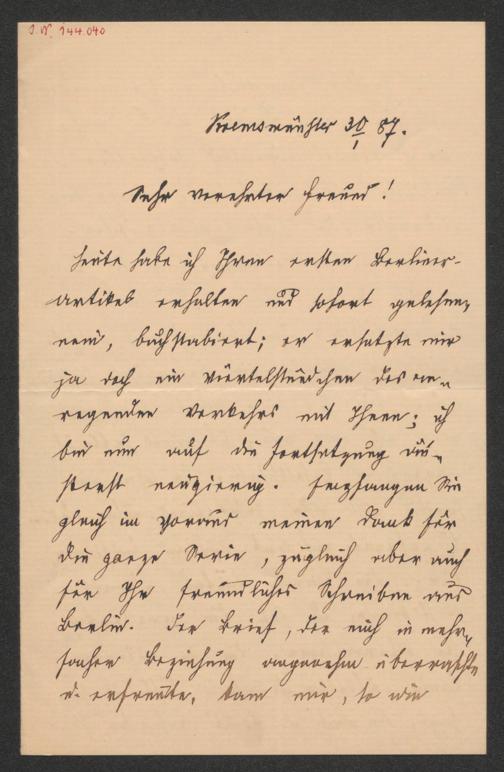 J. N. 144.040
Kremsmünster 30/1 87.
Sehr verehrter Freund!
Heute habe ich Ihren ersten Berliner-
artikel erhalten und sofort gelesen,
nein, buchstabiert; er ersetzte mir
ja doch ein Viertelstündchen des an-
regenden Verkehrs mit Ihnen; ich
bin nun auf die Fortsetzung äu-
ßerst neugierig. Empfangen Sie
gleich im Voraus meinen Dank für
die ganze Serie, zugleich aber auch
für Ihr freundliches Schreiben aus
Berlin. Der Brief, der mich in mehr-
facher Beziehung angenehm überraschte
u. erfreute, kam mir, so wie